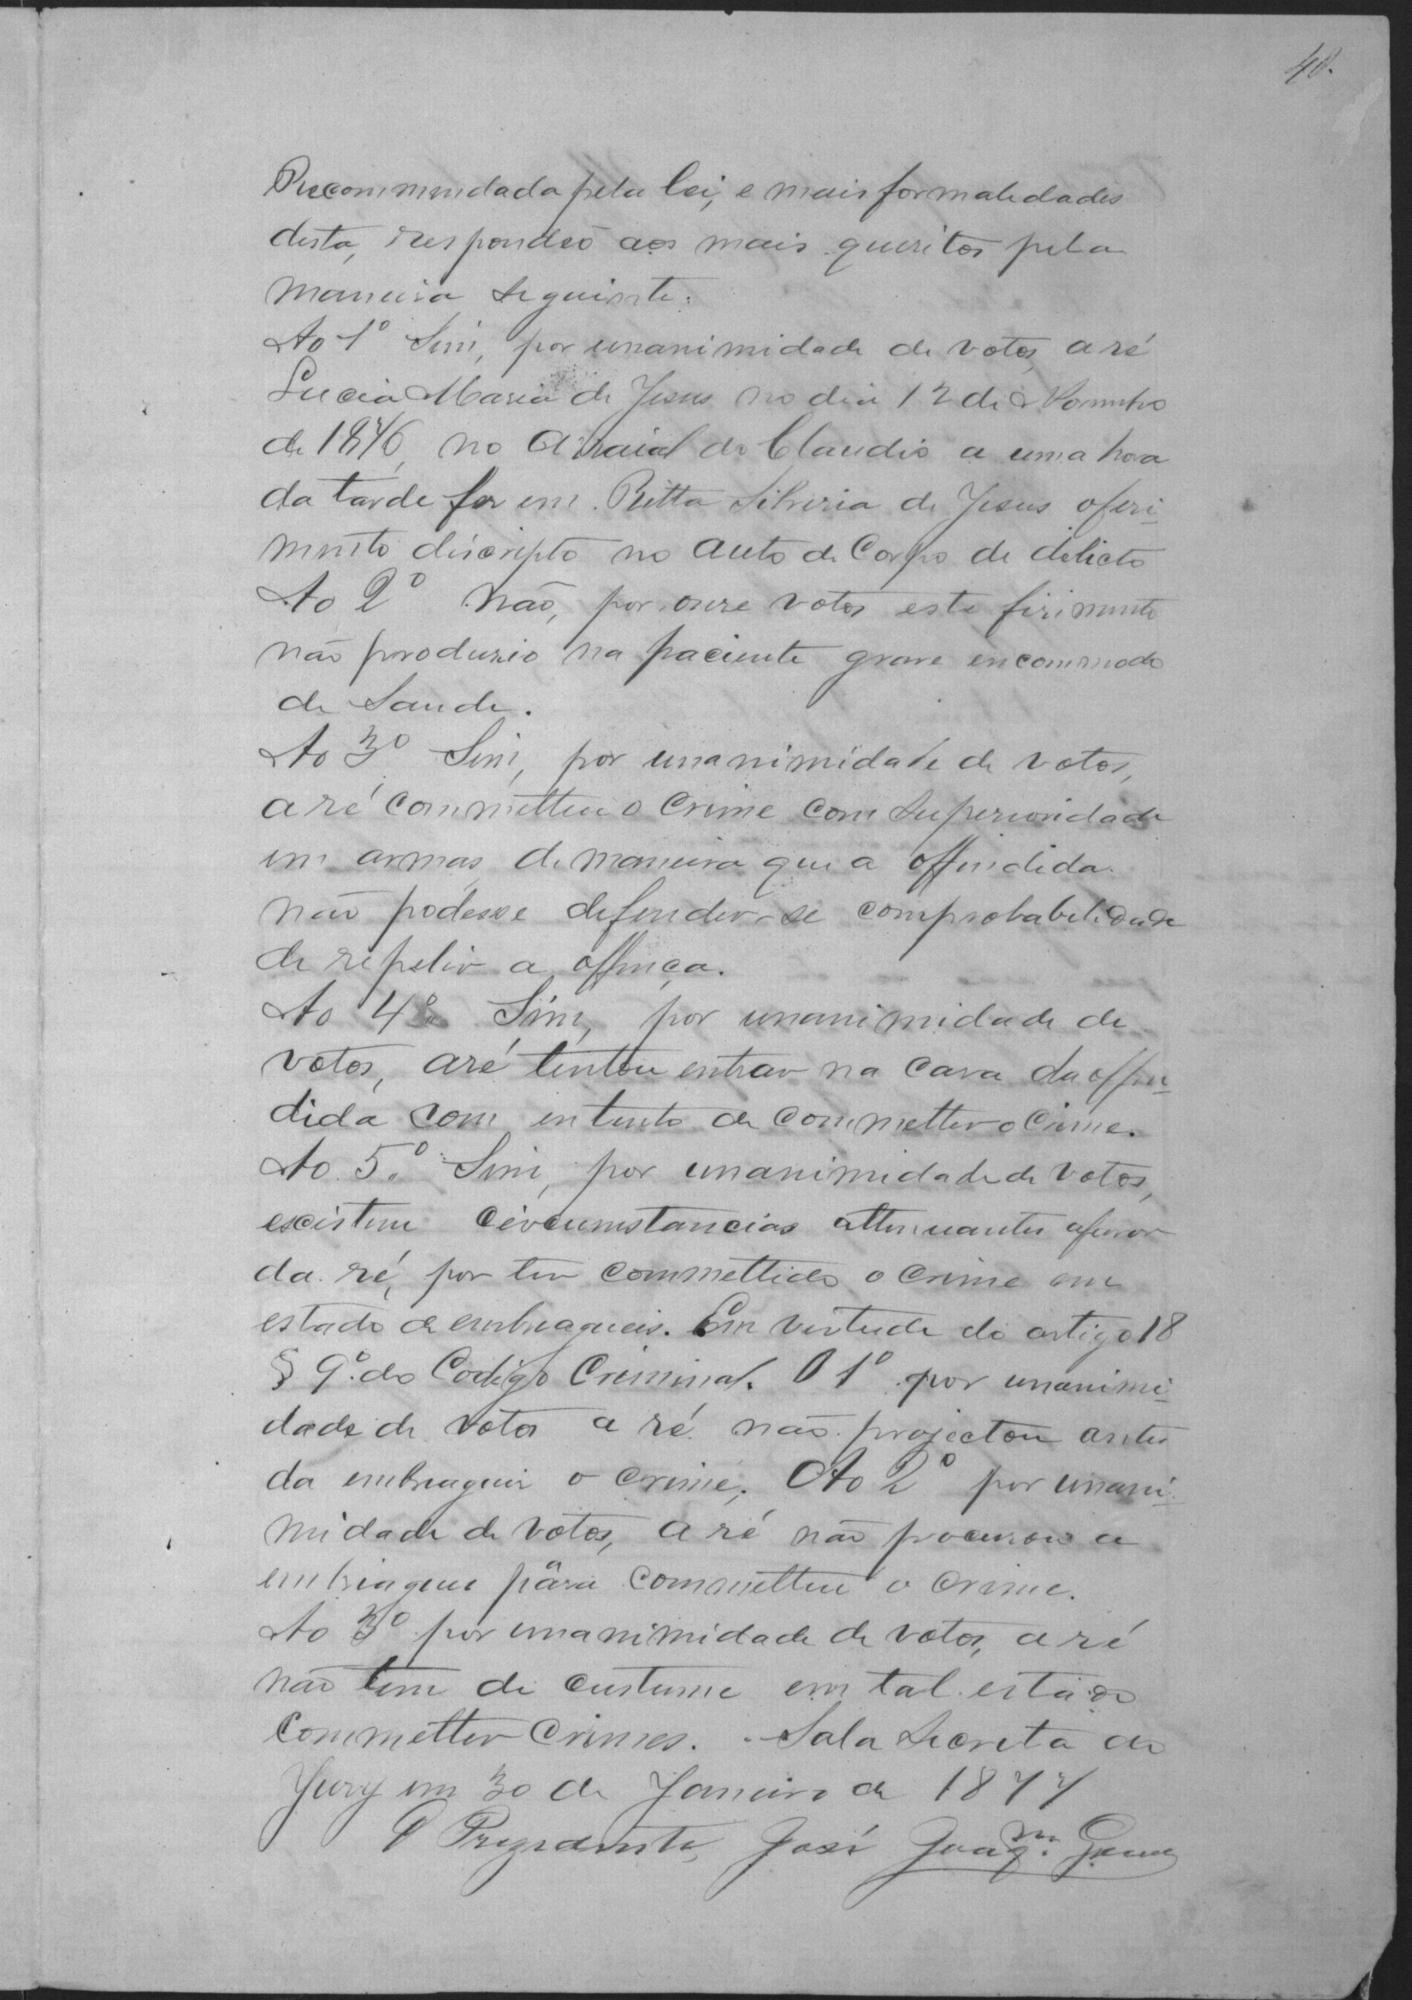 48.
Recommendada pela lei, e mais formalidades
desta, respondeo aos mais quezitos pela
maneira seguinte.
Ao 1º Sim, por unanimidade de votos, a ré
Lucia Maria de Jesus no dia 12 de Novembro
de 1876, no Arraial do Claudio a uma hora
da tarde fez em Ritta Silveria de Jesus o feri-
mento discripto no auto de Corpo de delicto
Ao 2º Não, por onze votos este firimento
não produzio na paciente grave encommodo
de Saude.
Ao 3º Sim, por unanimidade de votos,
a ré commetteu o crime com superioridade
em armas, de maneira que a offendida
não podesse defender-se com probabelidade
de repelir a offença.
Ao 4º Sim, por unanimidade de
votos, a ré tentou entrar na caza da offen-
dida com entento de commetter o crime.
Ao 5º Sim, por unanimidade de votos,
existem circumstancias attenuantes a favor
da ré, por ter commettido o crime em
estado de embriagueis. Em virtude do artigo 18
§ 9º do Codigo Criminal. O 1º por unanimi-
dade de votos a ré não projectou antes
da embriaguis o crime. Ao 2º por unani-
midade de votos, a ré não procurou a
embriagues para commetter o crime.
Ao 3º por unanimidade de votos, a ré
não tem de custume em tal estado
Commetter Crimes. Sala Secreta do
Jury em 30 de Janeiro de 1877
O Prezidente, José Joaqm. Gomes